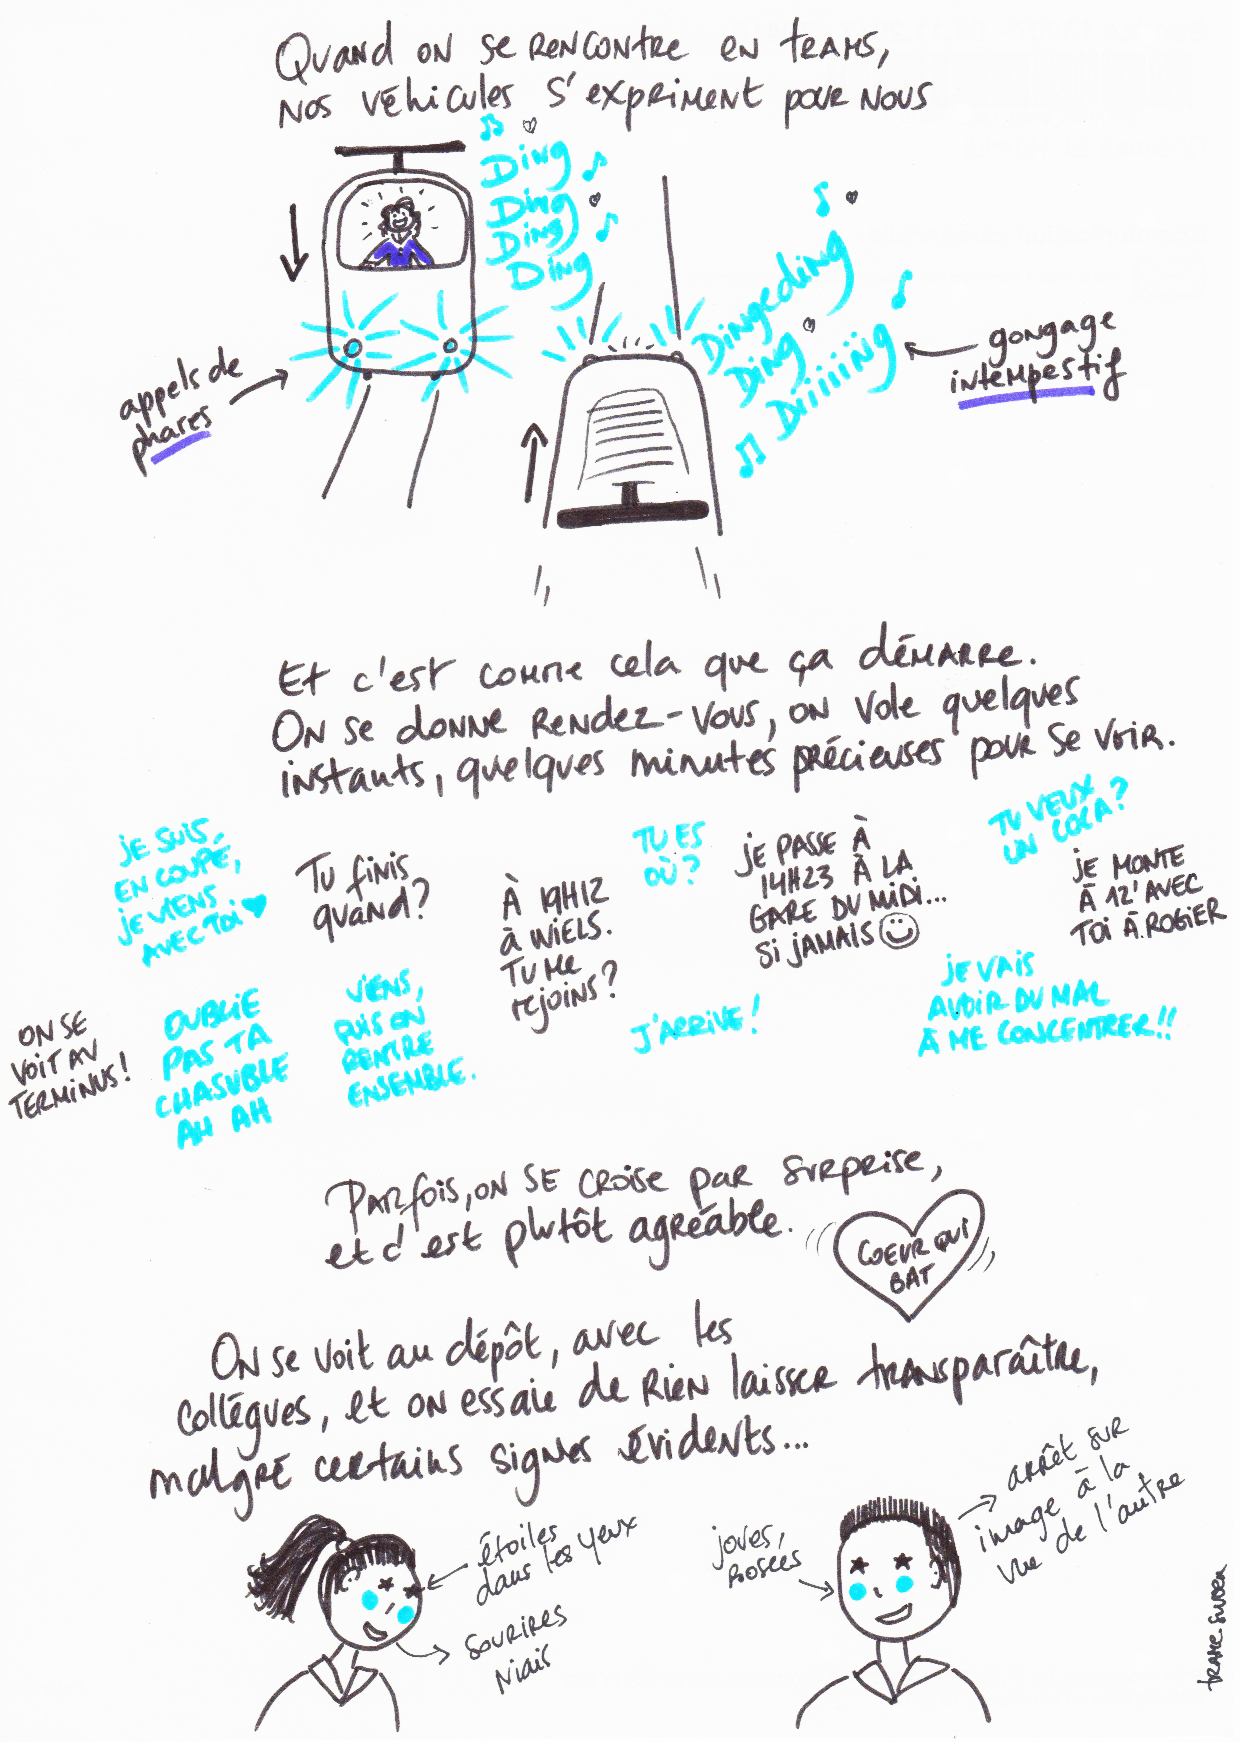 Quand on se rencontre en trams,
nos véhicules s'expriment pour nous
Ding
Ding
Ding
Ding
Dingeding
Ding
Diiiiing
gongage
intempestif
appels de
phares
Et c'est comme cela que ça démarre.
On se donne rendez-vous, on vole quelques
instants, quelques minutes précieuses pour se voir.
JE SUIS,
EN COUPÉ,
JE VIENS
AVEC TOI
Tu finis
quand?
À 19H12
à WIELS.
TU ME
rejoins?
TU ES
OÙ?
JE PASSE À
14H23 À LA
GARE DU MIDI...
SI JAMAIS
TU VEUX
UN COCA?
JE MONTE
À 12' AVEC
TOI À ROGIER
ON SE
VOIT AU
TERMINUS!
OUBLIE
PAS TA
CHASUBLE
AH AH
VIENS,
PUIS ON
RENTRE
ENSEMBLE.
J'ARRIVE!
JE VAIS
AVOIR DU MAL
À ME CONCENTRER!!
Parfois, on se croise par surprise,
et c'est plutôt agréable.
COEUR QUI
BAT
On se voit au dépôt, avec les
collègues, et on essaie de rien laisser transparaître,
malgré certains signes évidents...
étoiles
dans les yeux
sourires
niais
joues,
rosées
arrêt sur
image à la
vue de l'autre